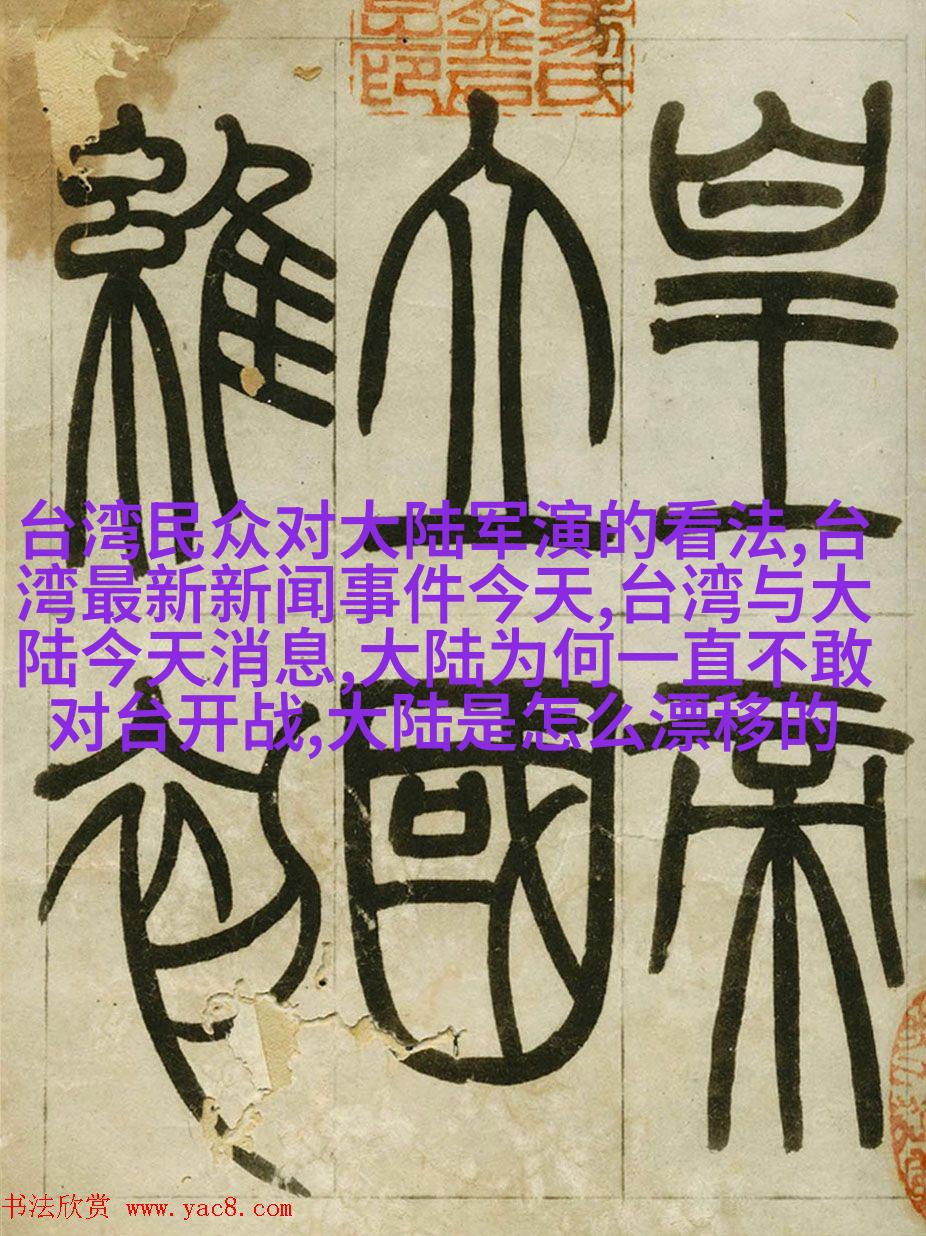 皇帝
立國
維初
台湾民众对大陆军演的看法,台
湾最新新闻事件今天,台湾与大
陆今天消息,大陆为何一直不敢
对台开战,大陆是怎么漂移的
书法欣赏 www.yac8.com